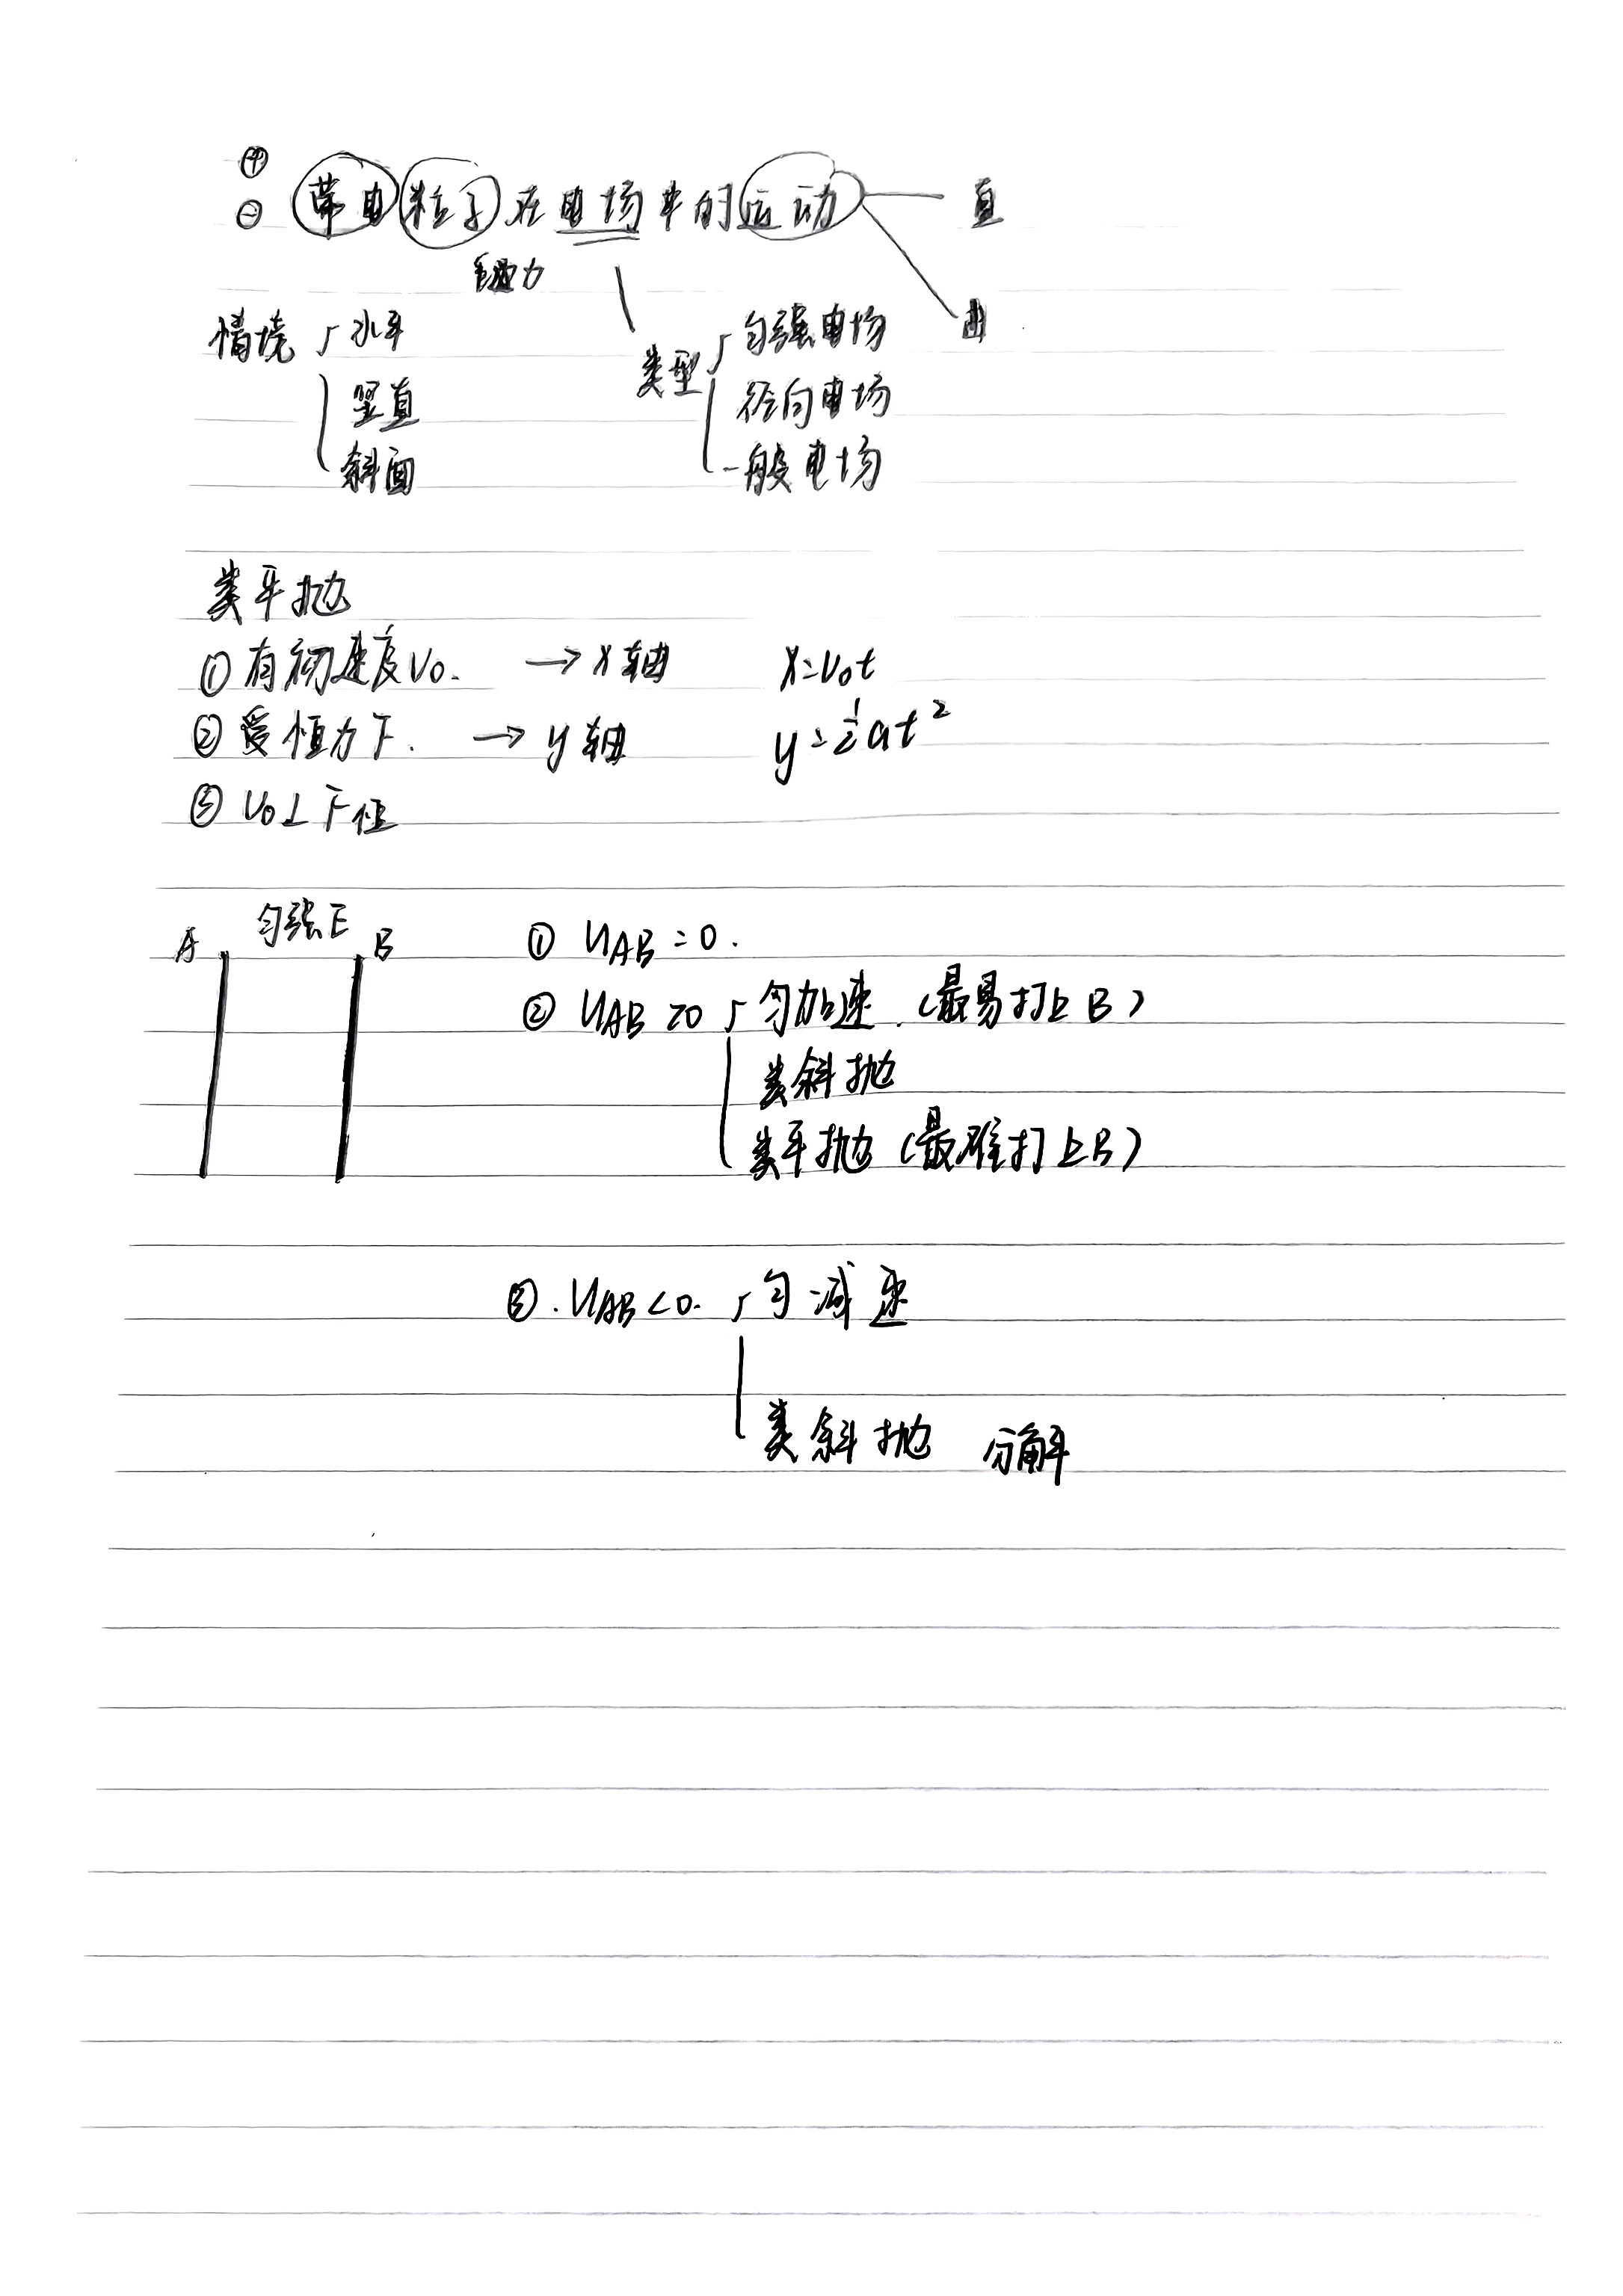 ⊕
⊖ 带电粒子在电场中的运动 直
重力
曲
情境 水平
竖直
斜面
类型 匀强电场
径向电场
一般电场
类平抛
① 有初速度V₀. → x轴 x=V₀t
② 受恒力F. → y轴 y=½at²
③ V₀⊥F恒
A 匀强E B
① U_AB=0.
② U_AB>0 匀加速.(最易打上B)
类斜抛
类平抛(最难打上B)
③. U_AB<0. 匀减速
类斜抛 分解